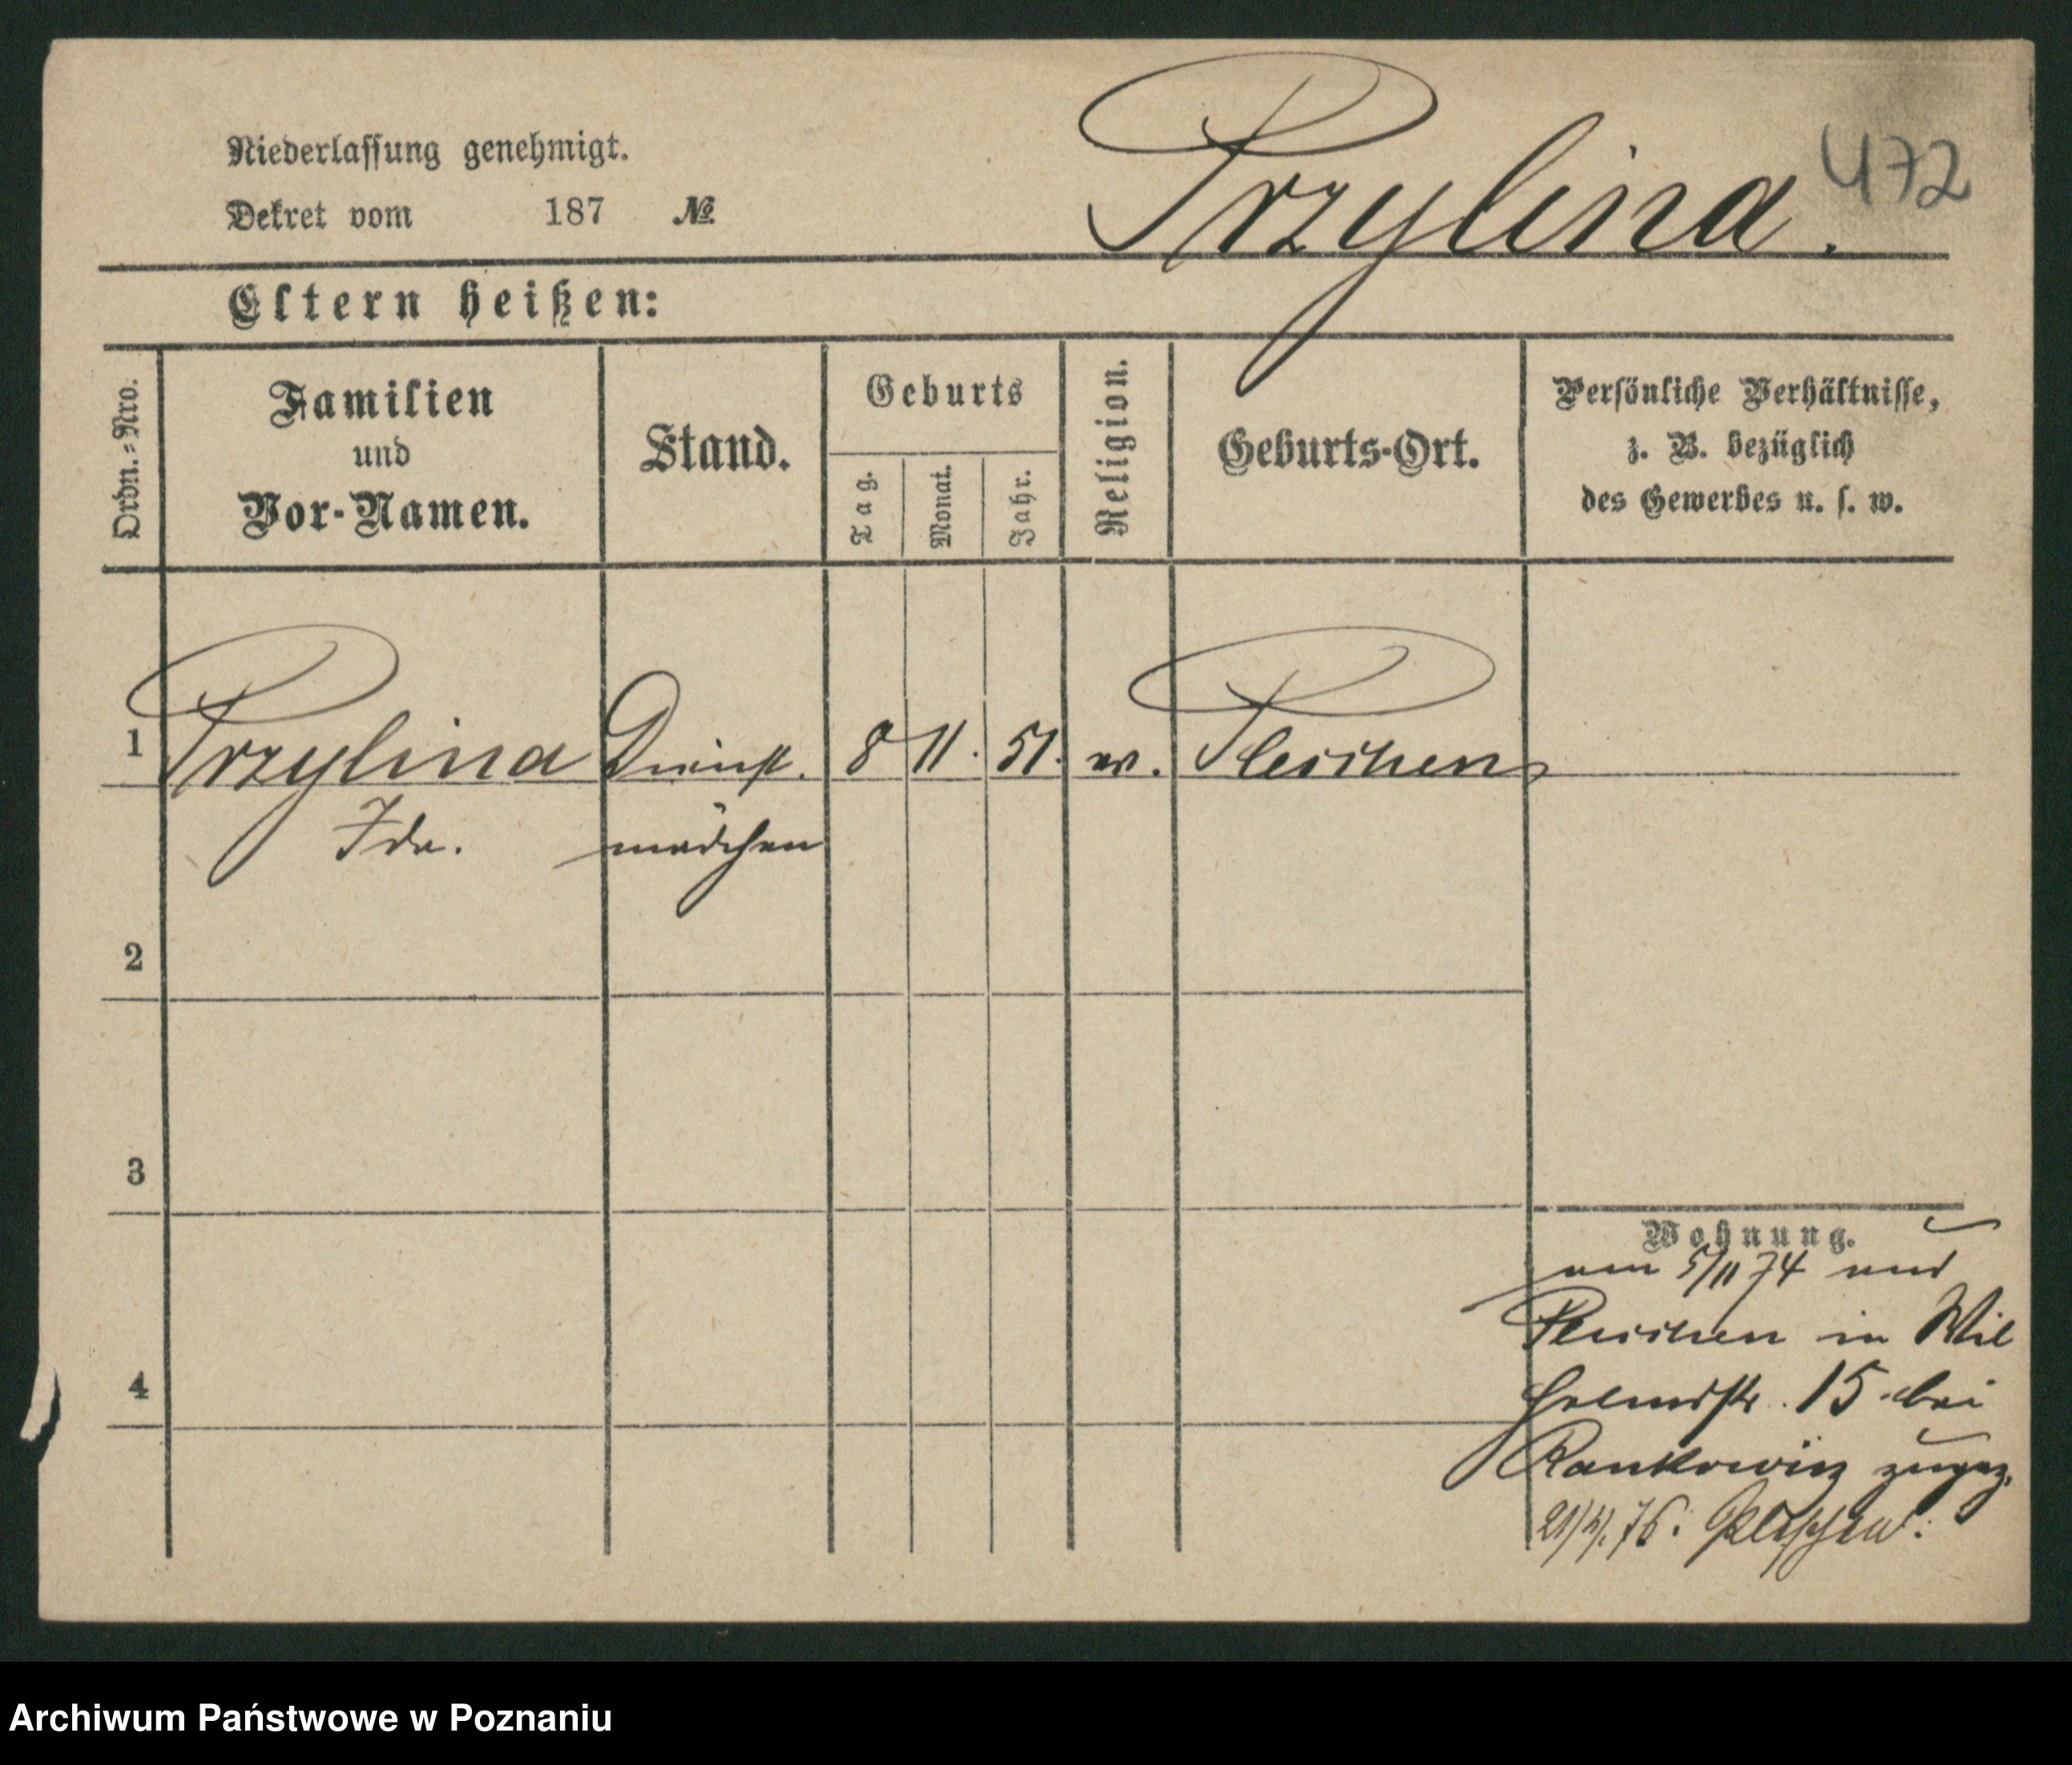 Niederlassung genehmigt.
Dekret vom 187 №
Przylina.
472
Eltern heißen:
Ordn.-Nro.
Familien
und
Vor-Namen.
Stand.
Geburts
Tag.
Monat.
Jahr.
Religion.
Geburts-Ort.
Persönliche Verhältnisse,
z. B. bezüglich
des Gewerbes u. s. w.
1 Przylina Dienst. 8 11. 51. ev. Pleschen
Ida. mädchen
2
3
4
Wohnung.
am 5/11 74 aus
Pleschen in Wil
helmstr. 15 bei
Rankowicz zugez.
21/4. 76. Pleschen.
Archiwum Państwowe w Poznaniu